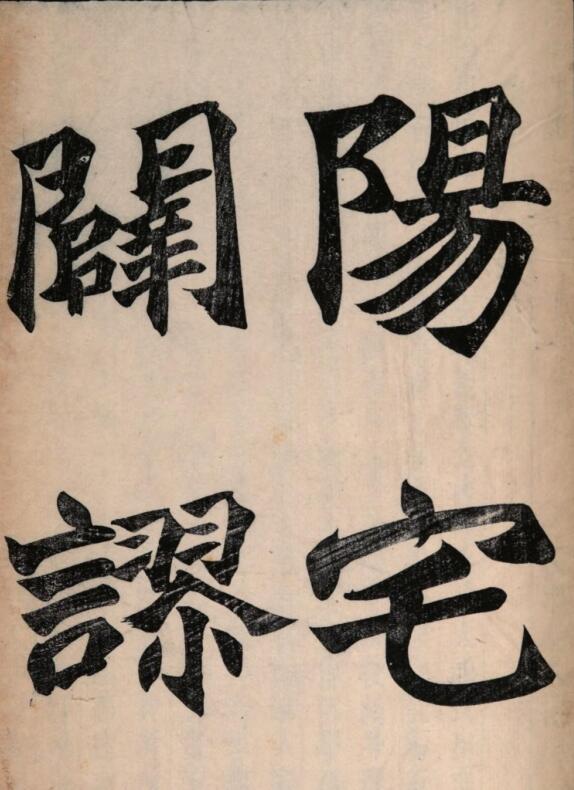 陽宅
闢謬